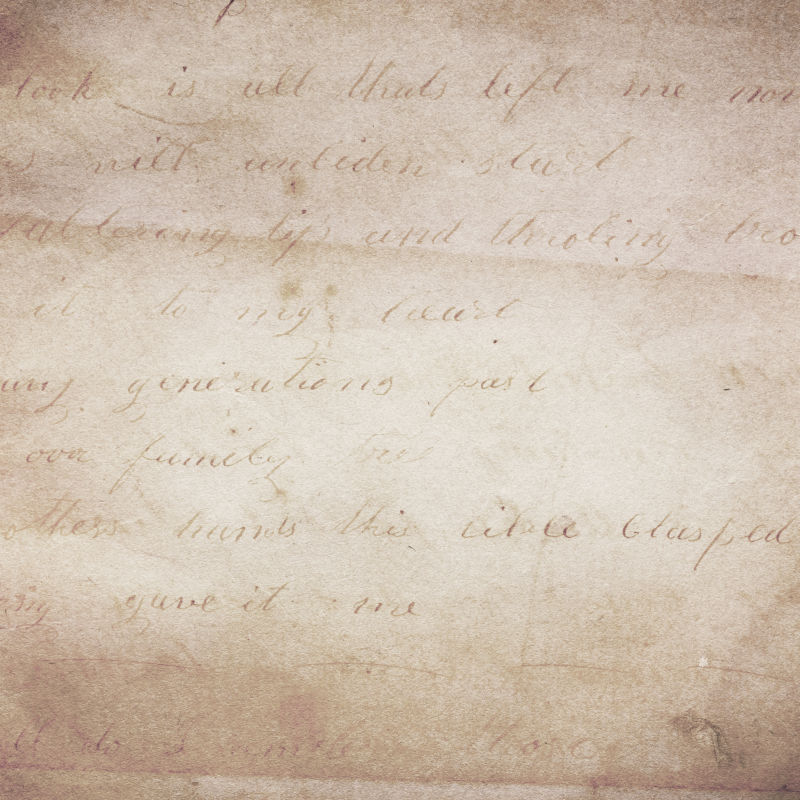 look is all thats left me now
will unbiden start
faltering lip and throbing bro
it to my heart
many generations past
our family tree
others hands this bible Clasped
ing gave it me
ll do I